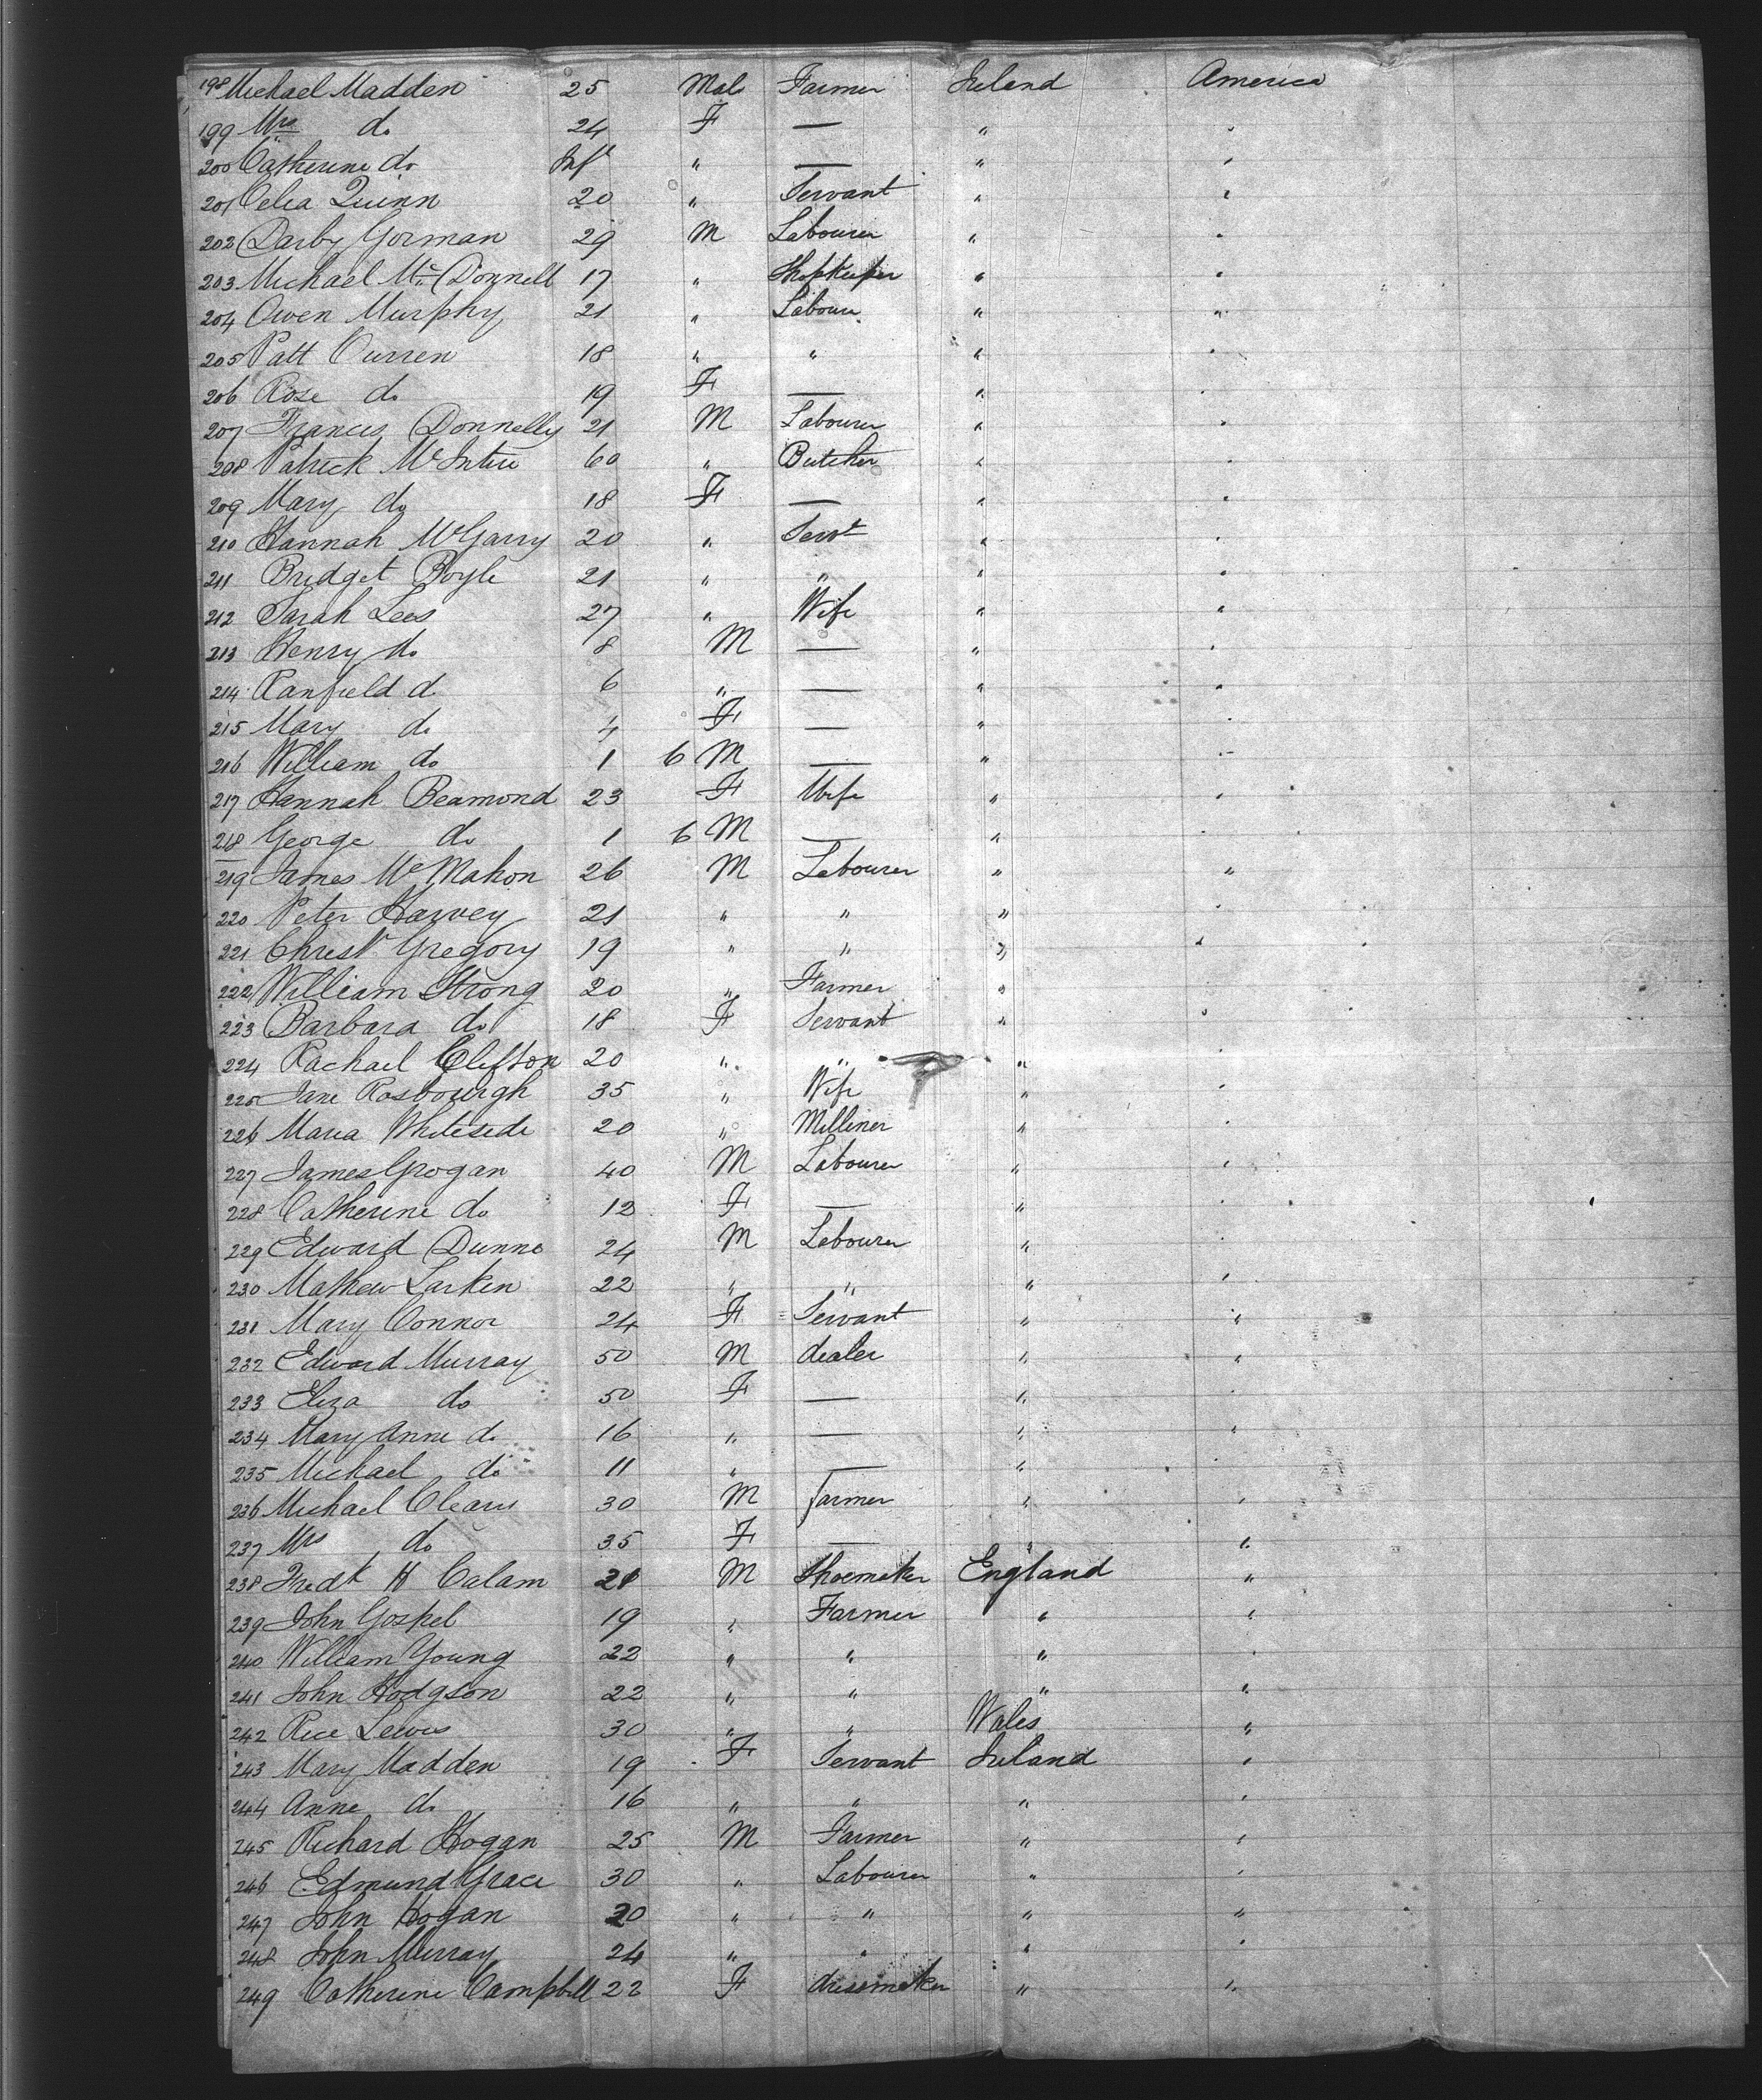 198 Michael Madden 25 Male Farmer Ireland America
199 Mrs do 24 F — " "
200 Catherine do Inft " — " "
201 Celia Quinn 20 " Servant " "
202 Darby Gorman 29 M Labourer " "
203 Michael McDonnell 17 " Shopkeeper " "
204 Owen Murphy 21 " Labourer " "
205 Patt Curren 18 " " " "
206 Rose do 19 F — " "
207 Francis Donnelly 21 M Labourer " "
208 Patrick McIntire 60 " Butcher " "
209 Mary do 18 F — " "
210 Hannah McGarry 20 " Servt " "
211 Bridget Boyle 21 " " " "
212 Sarah Lees 27 " Wife " "
213 Henry do 8 M — " "
214 Ranfield do 6 " — " "
215 Mary do 4 F — " "
216 William do 1 6 M — " "
217 Hannah Beamond 23 F Wife " "
218 George do 1 6 M — " "
219 James McMahon 26 M Labourer " "
220 Peter Harvey 21 " " " "
221 Christr Gregory 19 " " " "
222 William Strong 20 " Farmer " "
223 Barbara do 18 F Servant " "
224 Rachael Clifton 20 " " " "
225 Jane Rosbourgh 35 " Wife " "
226 Maria Whiteside 20 " Milliner " "
227 James Grogan 40 M Labourer " "
228 Catherine do 12 F — " "
229 Edward Dunne 24 M Labourer " "
230 Mathew Larken 22 " " " "
231 Mary Connor 24 F Servant " "
232 Edward Murray 50 M dealer " "
233 Eliza do 50 F — " "
234 Mary Anne do 16 " — " "
235 Michael do 11 " — "
236 Michael Clearis 30 M farmer " "
237 Mrs do 35 F — " "
238 Fredk H Calam 21 M Shoemaker England "
239 John Gospel 19 " Farmer " "
240 William Young 22 " " " "
241 John Hodgson 22 " " " "
242 Rice Lewis 30 " " Wales "
243 Mary Madden 19 F Servant Ireland "
244 Anne do 16 " " " "
245 Richard Hogan 25 M Farmer " "
246 Edmund Grace 30 " Labourer " "
247 John Hogan 20 " " " "
248 John Murray 24 " " " "
249 Catherine Campbell 22 F dressmaker " "